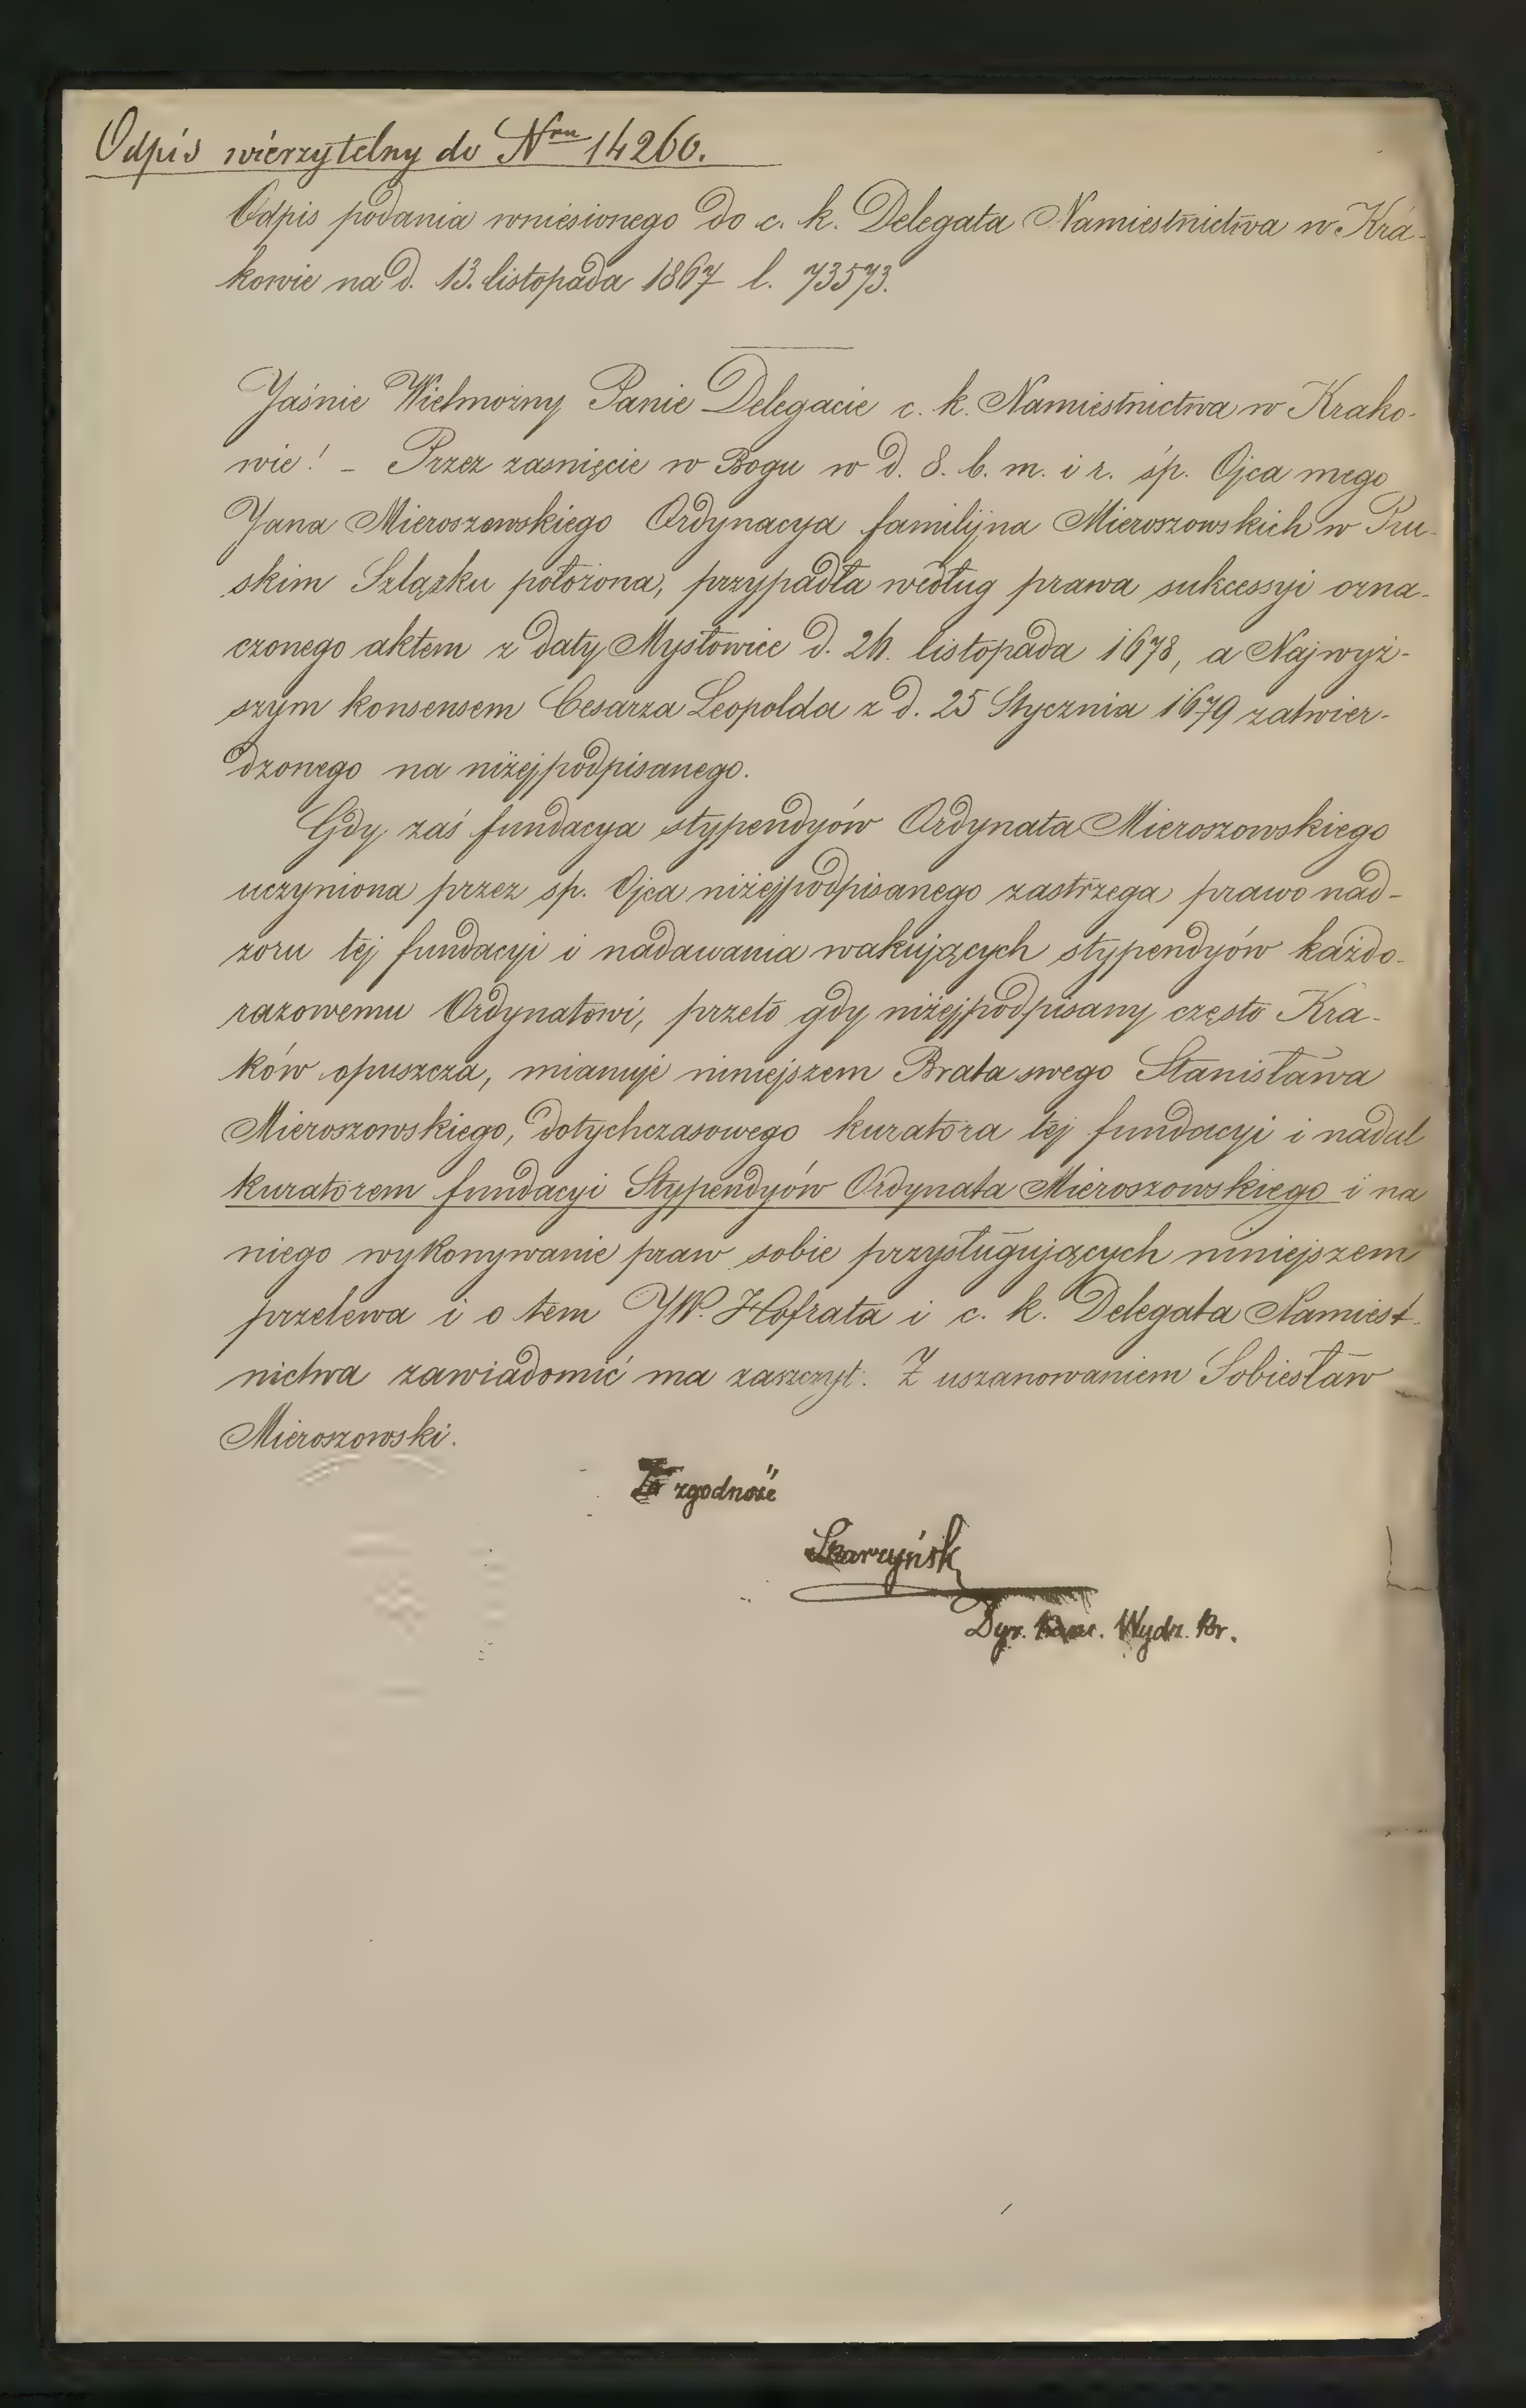 Odpis wierzytelny do Nru 14260.
Odpis podania wniesionego do c. k. Delegata Namiestnictwa w Kra-
kowie na d. 13. listopada 1867 l. 73573.
Jaśnie Wielmożny Panie Delegacie c. k. Namiestnictwa w Krako-
wie! – Przez zasnięcie w Bogu w d. 8. b. m. i r. śp. Ojca mego
Jana Mieroszowskiego Ordynacya familijna Mieroszowskich w Pru-
skim Szlązku położona, przypadła według prawa sukcessyi ozna-
czonego aktem z daty Mysłowice d. 26. listopada 1678, a Najwyż-
szym konsensem Cesarza Leopolda z d. 25 Stycznia 1679 zatwier-
dzonego na niżejpodpisanego.
Gdy zaś fundacya stypendyów Ordynata Mieroszowskiego
uczyniona przez sp. Ojca niżejpodpisanego zastrzega prawo nad-
zoru tej fundacyi i nadawania wakujących stypendyów każdo-
razowemu Ordynatowi, przeto gdy niżejpodpisany często Kra-
ków opuszcza, mianuje niniejszem Brata swego Stanisława
Mieroszowskiego, dotychczasowego kuratora tej fundacyi i nadal
kuratorem fundacyi Stypendyów Ordynata Mieroszowskiego i na
niego wykonywanie praw sobie przysługujących niniejszem
przelewa i o tem JW. Hofrata i c. k. Delegata Namiest-
nictwa zawiadomić ma zaszczyt. Z uszanowaniem Sobiesław
Mieroszowski.
Za zgodność
Skarzyński
Dyr. Kanc. Wydz. Kr.